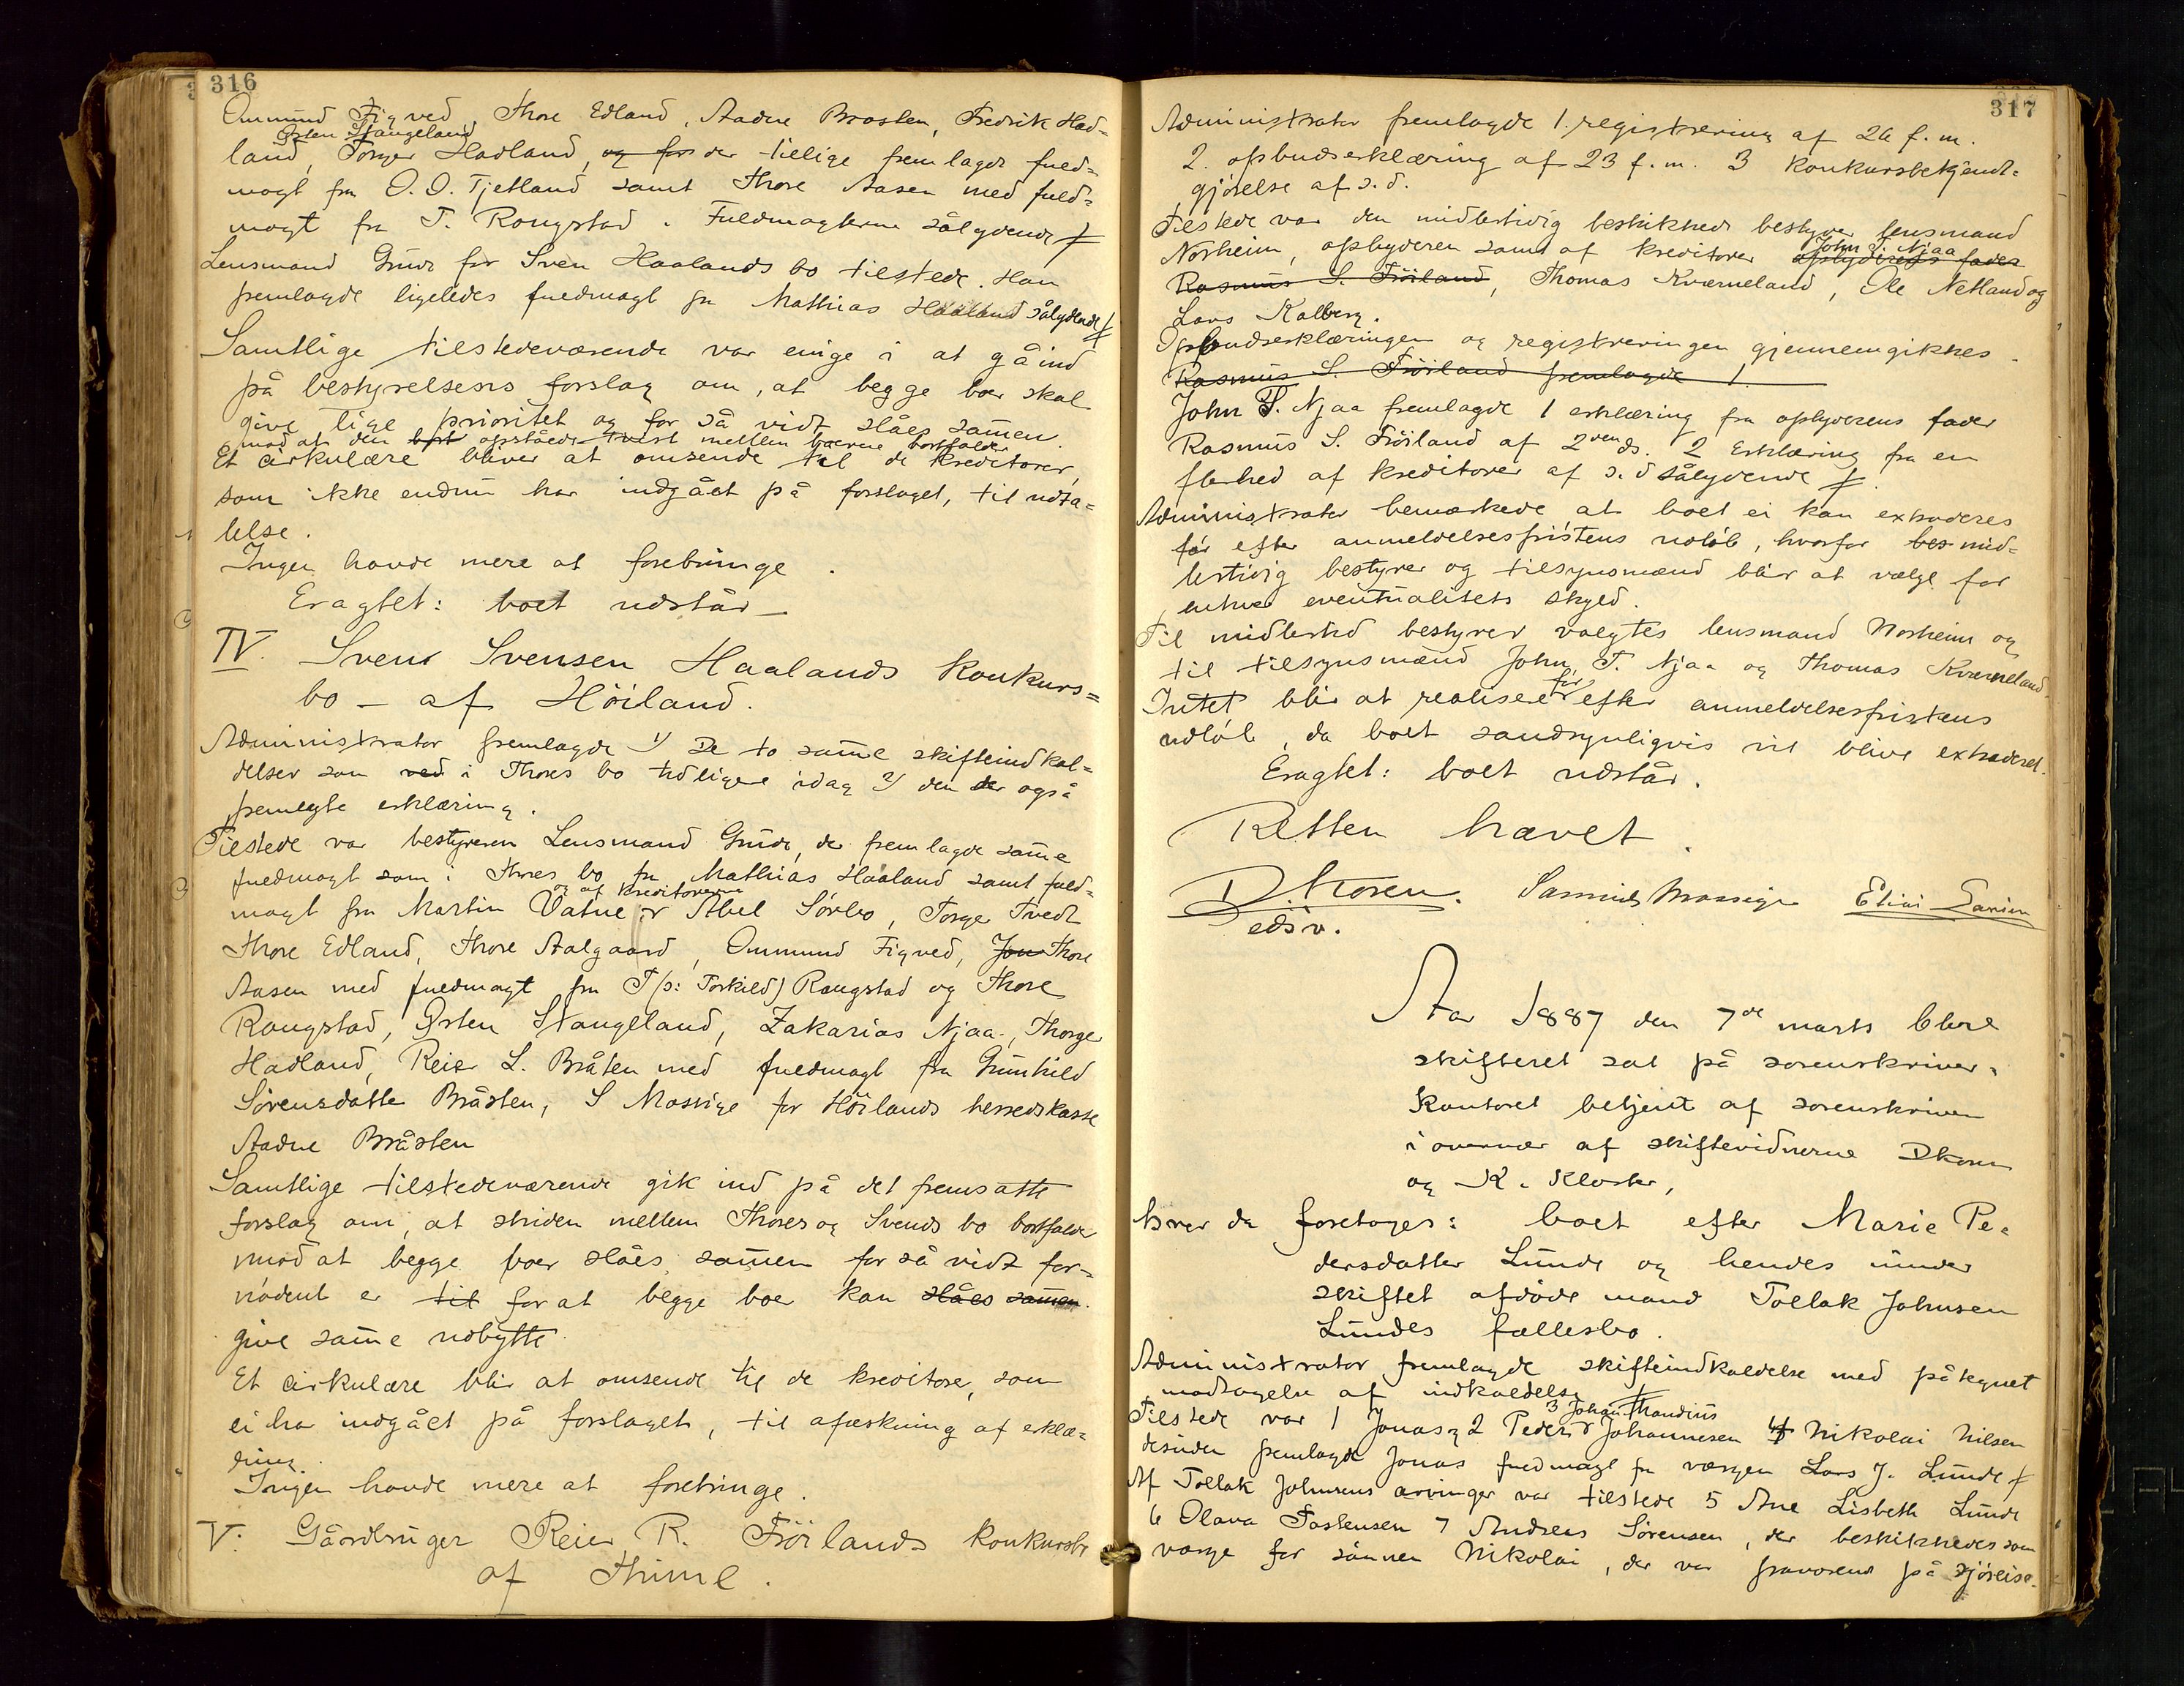 316
Ommund Figved, Thore Edland, Aadne Braasten, Fredrik Had=
Østen Stangeland
land, Torger Hadland, og for der tillige fremlagde fuld=
magt fra O. O. Tjetland samt Thore Aasen med fuld=
magt fra T. Rongstad. Fuldmagterne sålydende
Lensmand Grude for Sven Haalands bo tilstede. Han
fremlagde ligeledes fuldmagt fra Mathias Haaland sålydende
Samtlige tilstedeværende var enige i at gå ind
på bestyrelsens forslag om, at begge boer skal
give lige prioritet og for så vidt slåes samen.
mod at den opståede tvist mellem boerne bortfalder
Et cirkulære bliver at omsende til de kreditorer,
som ikke endnu har indgået på forslaget, til udta=
lelse.
Ingen havde mere at forebringe.
Eragtet: boet udstår
IV. Svend Svensen Haalands konkurs=
bo – af Höiland.
Administrator fremlagde 1/ De to same skifteindkal=
delser som ved i Thores bo tidligere idag 2/ den der også
fremlegte erklæring.
Tilstede var bestyreren Lensmand Grude, der fremlagde same
fuldmagt som i Thores bo fra Mathias Haaland samt fuld=
og af kreditorerne
magt fra Martin Vatne Abel Sörbo, Torger Tvedt
Thore Edland, Thore Aalgaard, Ommund Figved, Jon Thore
Aasen med fuldmagt fra T (ɔ: Torkild) Rongstad og Thore
Rongstad, Østen Stangeland, Zakarias Njaa, Thorger
Hadland, Reier L. Bråten med fuldmagt fra Gunhild
Sörensdatter Bråsten, S Massige for Höilands herredskasse
Aadne Bråsten
Samtlige tilstedeværende gik ind på det fremsatte
forslag om, at striden mellem Thores og Svends bo bortfalder
mod at begge boer slåes samen for så vidt for=
nödent er til for at begge boer kan slåes samen.
give same udbytte
Et cirkulære blir at omsende til de kreditorer, som
ei har indgået på forslaget, til afæskning af erklæ=
ring.
Ingen havde mere at forebringe.
V. Gårdbruger Reier R. Fröilands konkursbo
af Thime.
317
Administrator fremlagde 1. registrering af 26 f.m.
2. opbudserklæring af 23 f.m. 3 konkursbekjendt=
gjörelse af s.d.
Tilstede var den midlertidig beskikkede bestyrer lensmand
John T. Njaa
Norheim, opbyderen samt af kreditorer opbyderens fader
Rasmus S. Fröiland, Thomas Kværneland, Ole Netland og
Lars Kalberg.
Opbudserklæringen og registreringen gjennemgikkes.
Rasmus S. Fröiland fremlagde 1.
John T. Njaa fremlagde 1 erklæring fra opbyderens fader
Rasmus S. Fröiland af 2den ds. 2 Erklæring fra en
flerhed af kreditorer af s.d sålydende
Administrator bemærkede at boet ei kan extraderes
för efter anmeldelsesfristens udlöb, hvorfor bes mid=
lertidig bestyrer og tilsynsmænd blir at vælge for
enhver eventualitets skyld.
Til midlertid bestyrer valgtes lensmand Norheim og
til tilsynsmænd John T. Njaa og Thomas Kværneland.
för
Intet blir at realisere efter anmeldelsesfristens
udlöb, da boet sandsynligvis vil blive extraderet.
Eragtet: boet udstår.
Retten hævet.
D. Koren. Samuel Massige Elias Larsen
edsv.
Aar 1887 den 7de marts blev
skifteret sat på sorenskriver=
kontoret betjent af sorenskriveren
i overvær af skiftevidnerne D Koren
og K. Kloster,
hvor da foretoges: boet efter Marie Pe=
dersdatter Lunde og hendes under
skiftet afdöde mand Tollak Johnsen
Lundes fællesbo.
Administrator fremlagde skifteindkaldelse med påtegnet
modtagelse af indkaldelse
3 Johan Thandius
Tilstede var 1 Jonas, 2 Peder Johannesen 4 Nikolai Nilsen
desuden fremlagde Jonas fuldmagt fra værgen Lars J. Lunde
Af Tollak Johnsens arvinger var tilstede 5 Ane Lisbeth Lunde
6 Olava Tostensen 7 Andreas Sörensen, der beskikkedes som
værge for sönnen Nikolai, der var fraværende på sjöreise.